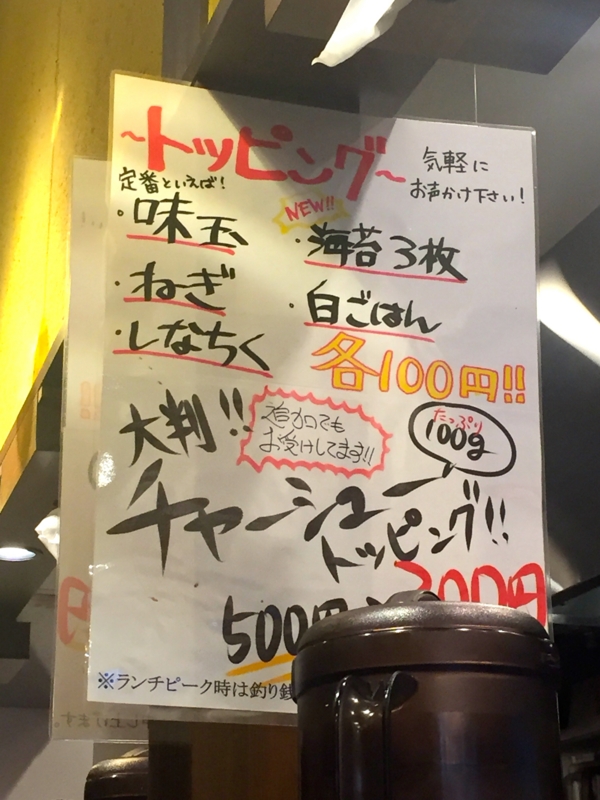 ～トッピング～
気軽に
お声かけ下さい!
定番といえば!
・味玉
NEW!!
・海苔3枚
・ねぎ
・白ごはん
・しなちく
各100円!!
大判!!
追加でも
お受けしてます!!
たっぷり
100g
チャーシュー
トッピング!!
500円
300円
※ランチピーク時は釣り銭